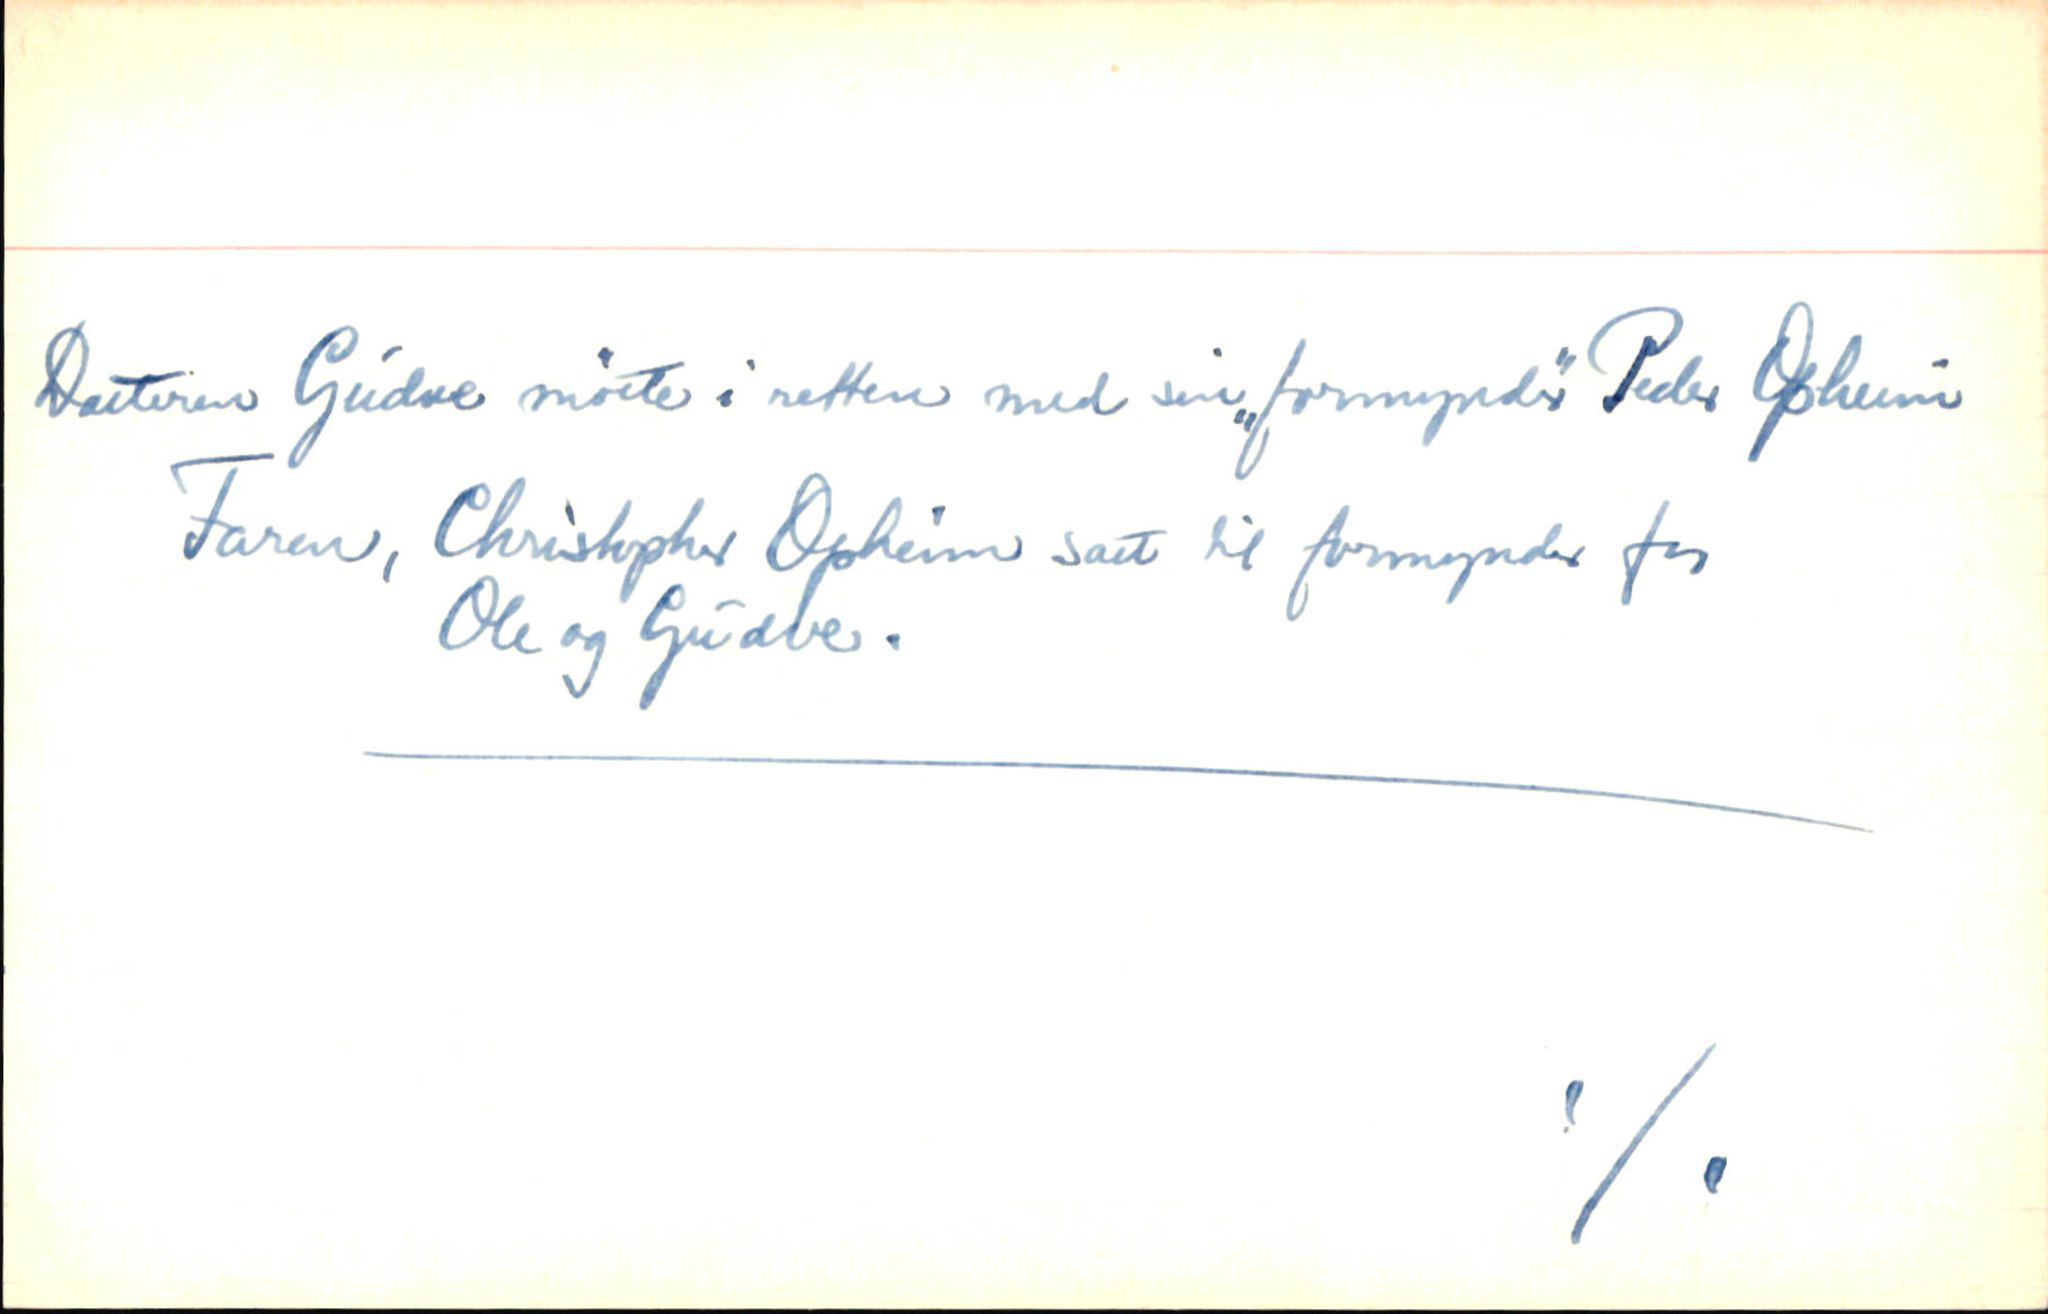 Datteren Gudve møtte i retten med sin „formynder" Peder Opheim
Faren, Christopher Opheim satt til formynder for
Ole og Gudve.
./.